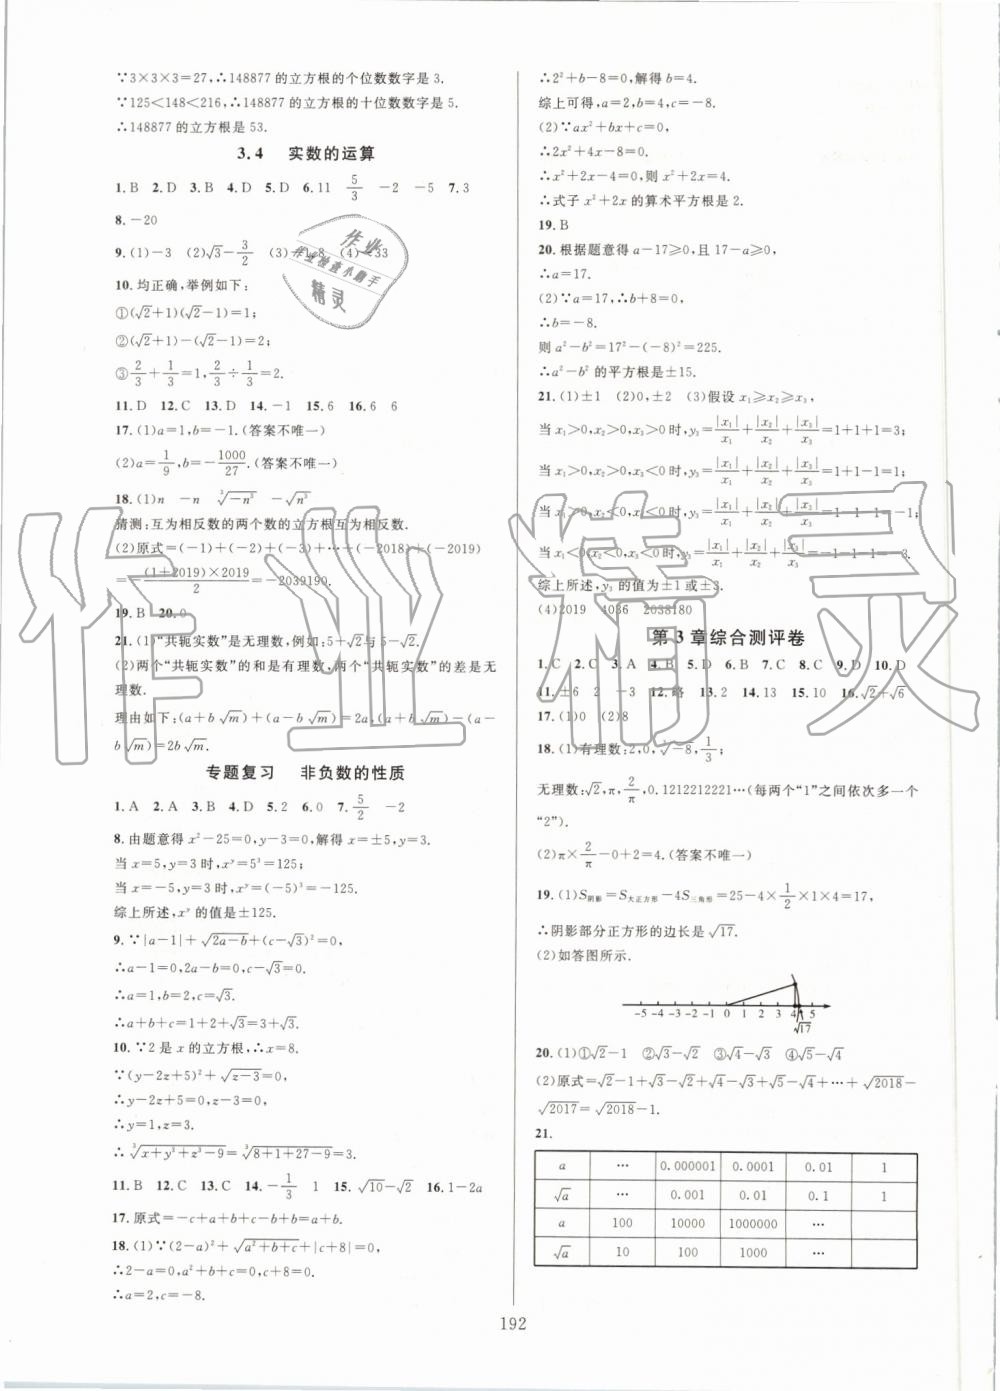 ∵3×3×3=27,∴148877的立方根的个位数数字是3.
∵125<148<216,∴148877的立方根的十位数数字是5.
∴148877的立方根是53.
3.4 实数的运算
1.B 2.D 3.B 4.D 5.D 6.11 5/3 -2 -5 7.3
8.-20
9.(1)-3 (2)√3-3/2
10.均正确,举例如下:
①(√2+1)(√2-1)=1;
②(√2+1)-(√2-1)=2;
③2/3+1/3=1,2/3÷1/3=2.
11.D 12.C 13.D 14.-1 15.6 16.6 6
17.(1)a=1,b=-1.(答案不唯一)
(2)a=1/9,b=-1000/27.(答案不唯一)
18.(1)n -n ∛-n³ -√n³
猜测:互为相反数的两个数的立方根互为相反数.
(2)原式=(-1)+(-2)+(-3)+…+(-2018)+(-2019)
=-(1+2019)×2019/2=-2039190.
19.B 20.0
21.(1)“共轭实数”是无理数,例如:5+√2与5-√2.
(2)两个“共轭实数”的和是有理数,两个“共轭实数”的差是无
理数.
理由如下:(a+b√m)+(a-b√m)=2a,(a+b√m)-(a-
b√m)=2b√m.
专题复习 非负数的性质
1.A 2.A 3.B 4.D 5.2 6.0 7.5/2 -2
8.由题意得x²-25=0,y-3=0,解得x=±5,y=3.
当x=5,y=3时,xʸ=5³=125;
当x=-5,y=3时,xʸ=(-5)³=-125.
综上所述,xʸ的值是±125.
9.∵|a-1|+√2a-b+(c-√3)²=0,
∴a-1=0,2a-b=0,c-√3=0.
∴a=1,b=2,c=√3.
∴a+b+c=1+2+√3=3+√3.
10.∵2是x的立方根,∴x=8.
∵(y-2z+5)²+√z-3=0,
∴y-2z+5=0,z-3=0.
∴y=1,z=3.
∴∛x+y³+z³-9=∛8+1+27-9=3.
11.B 12.C 13.C 14.-1/3 1 15.√10-√2 16.1-2a
17.原式=-c+a+b+c-b+b=a+b.
18.(1)∵(2-a)²+√a²+b+c+|c+8|=0,
∴2-a=0,a²+b+c=0,c+8=0.
∴a=2,c=-8.
∴2²+b-8=0,解得b=4.
综上可得,a=2,b=4,c=-8.
(2)∵ax²+bx+c=0,
∴2x²+4x-8=0.
∴x²+2x-4=0,则x²+2x=4.
∴式子x²+2x的算术平方根是2.
19.B
20.根据题意得a-17≥0,且17-a≥0,
∴a=17.
(2)∵a=17,∴b+8=0,
∴b=-8.
则a²-b²=17²-(-8)²=225.
∴a²-b²的平方根是±15.
21.(1)±1 (2)0,±2 (3)假设x₁≥x₂≥x₃,
当x₁>0,x₂>0,x₃>0时,y₃=|x₁|/x₁+|x₂|/x₂+|x₃|/x₃=1+1+1=3;
当x₁>0,x₂>0,x₃<0时,y₃=|x₁|/x₁+|x₂|/x₂+|x₃|/x₃=1+1-1=1;
当x₁>0,x₂<0,x₃<0时,y₃=|x₁|/x₁+|x₂|/x₂+|x₃|/x₃=1-1-1=-1;
当x₁<0,x₂<0,x₃<0时,y₃=|x₁|/x₁+|x₂|/x₂+|x₃|/x₃=-1-1-1=-3.
综上所述,y₃的值为±1或±3.
(4)2019 4036 2038180
第3章综合测评卷
1.C 2.C 3.A 4.B 5.D 6.B 7.C 8.C 9.D 10.D
11.±6 2 -3 12.略 13.2 14.13 15.10 16.√2+√6
17.(1)0 (2)8
18.(1)有理数:2,0,∛-8,1/3;
无理数:√2,π,2/π,0.1212212221…(每两个“1”之间依次多一个
“2”).
(2)π×2/π-0+2=4.(答案不唯一)
19.(1)S阴影=S大正方形-4S三角形=25-4×1/2×1×4=17,
∴阴影部分正方形的边长是√17.
(2)如答图所示.
-5 -4 -3 -2 -1 0 1 2 3 4 5
√17
20.(1)①√2-1 ②√3-√2 ③√4-√3 ④√5-√4
(2)原式=√2-1+√3-√2+√4-√3+√5-√4+…+√2018-
√2017=√2018-1.
21.
a … 0.000001 0.0001 0.01 1
√a … 0.001 0.01 0.1 1
a 100 10000 1000000 …
√a 10 100 1000 …
192
作业
作业检查小助手
精灵
作业精灵